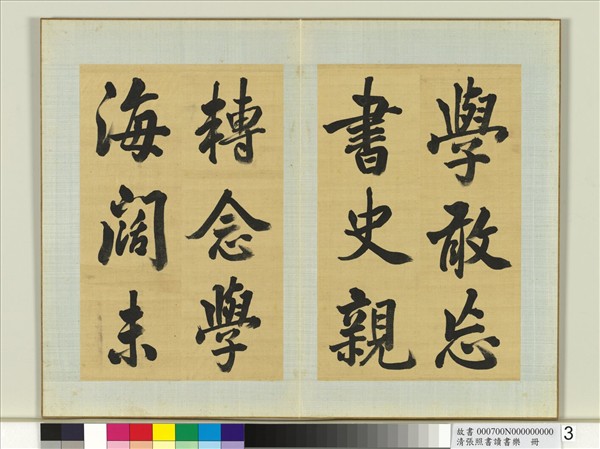 學敢忘
書史親
轉念學
海闊未
故書 000700N000000000
清張照書讀書樂 冊
3